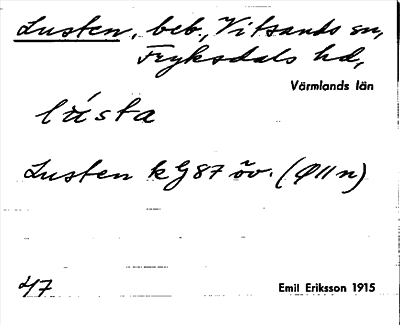 Lusten, beb., Vitsands sn,
Fryksdals hd,
Värmlands län
lústa
Lusten kG87 öv. (Q11n)
47
Emil Eriksson 1915